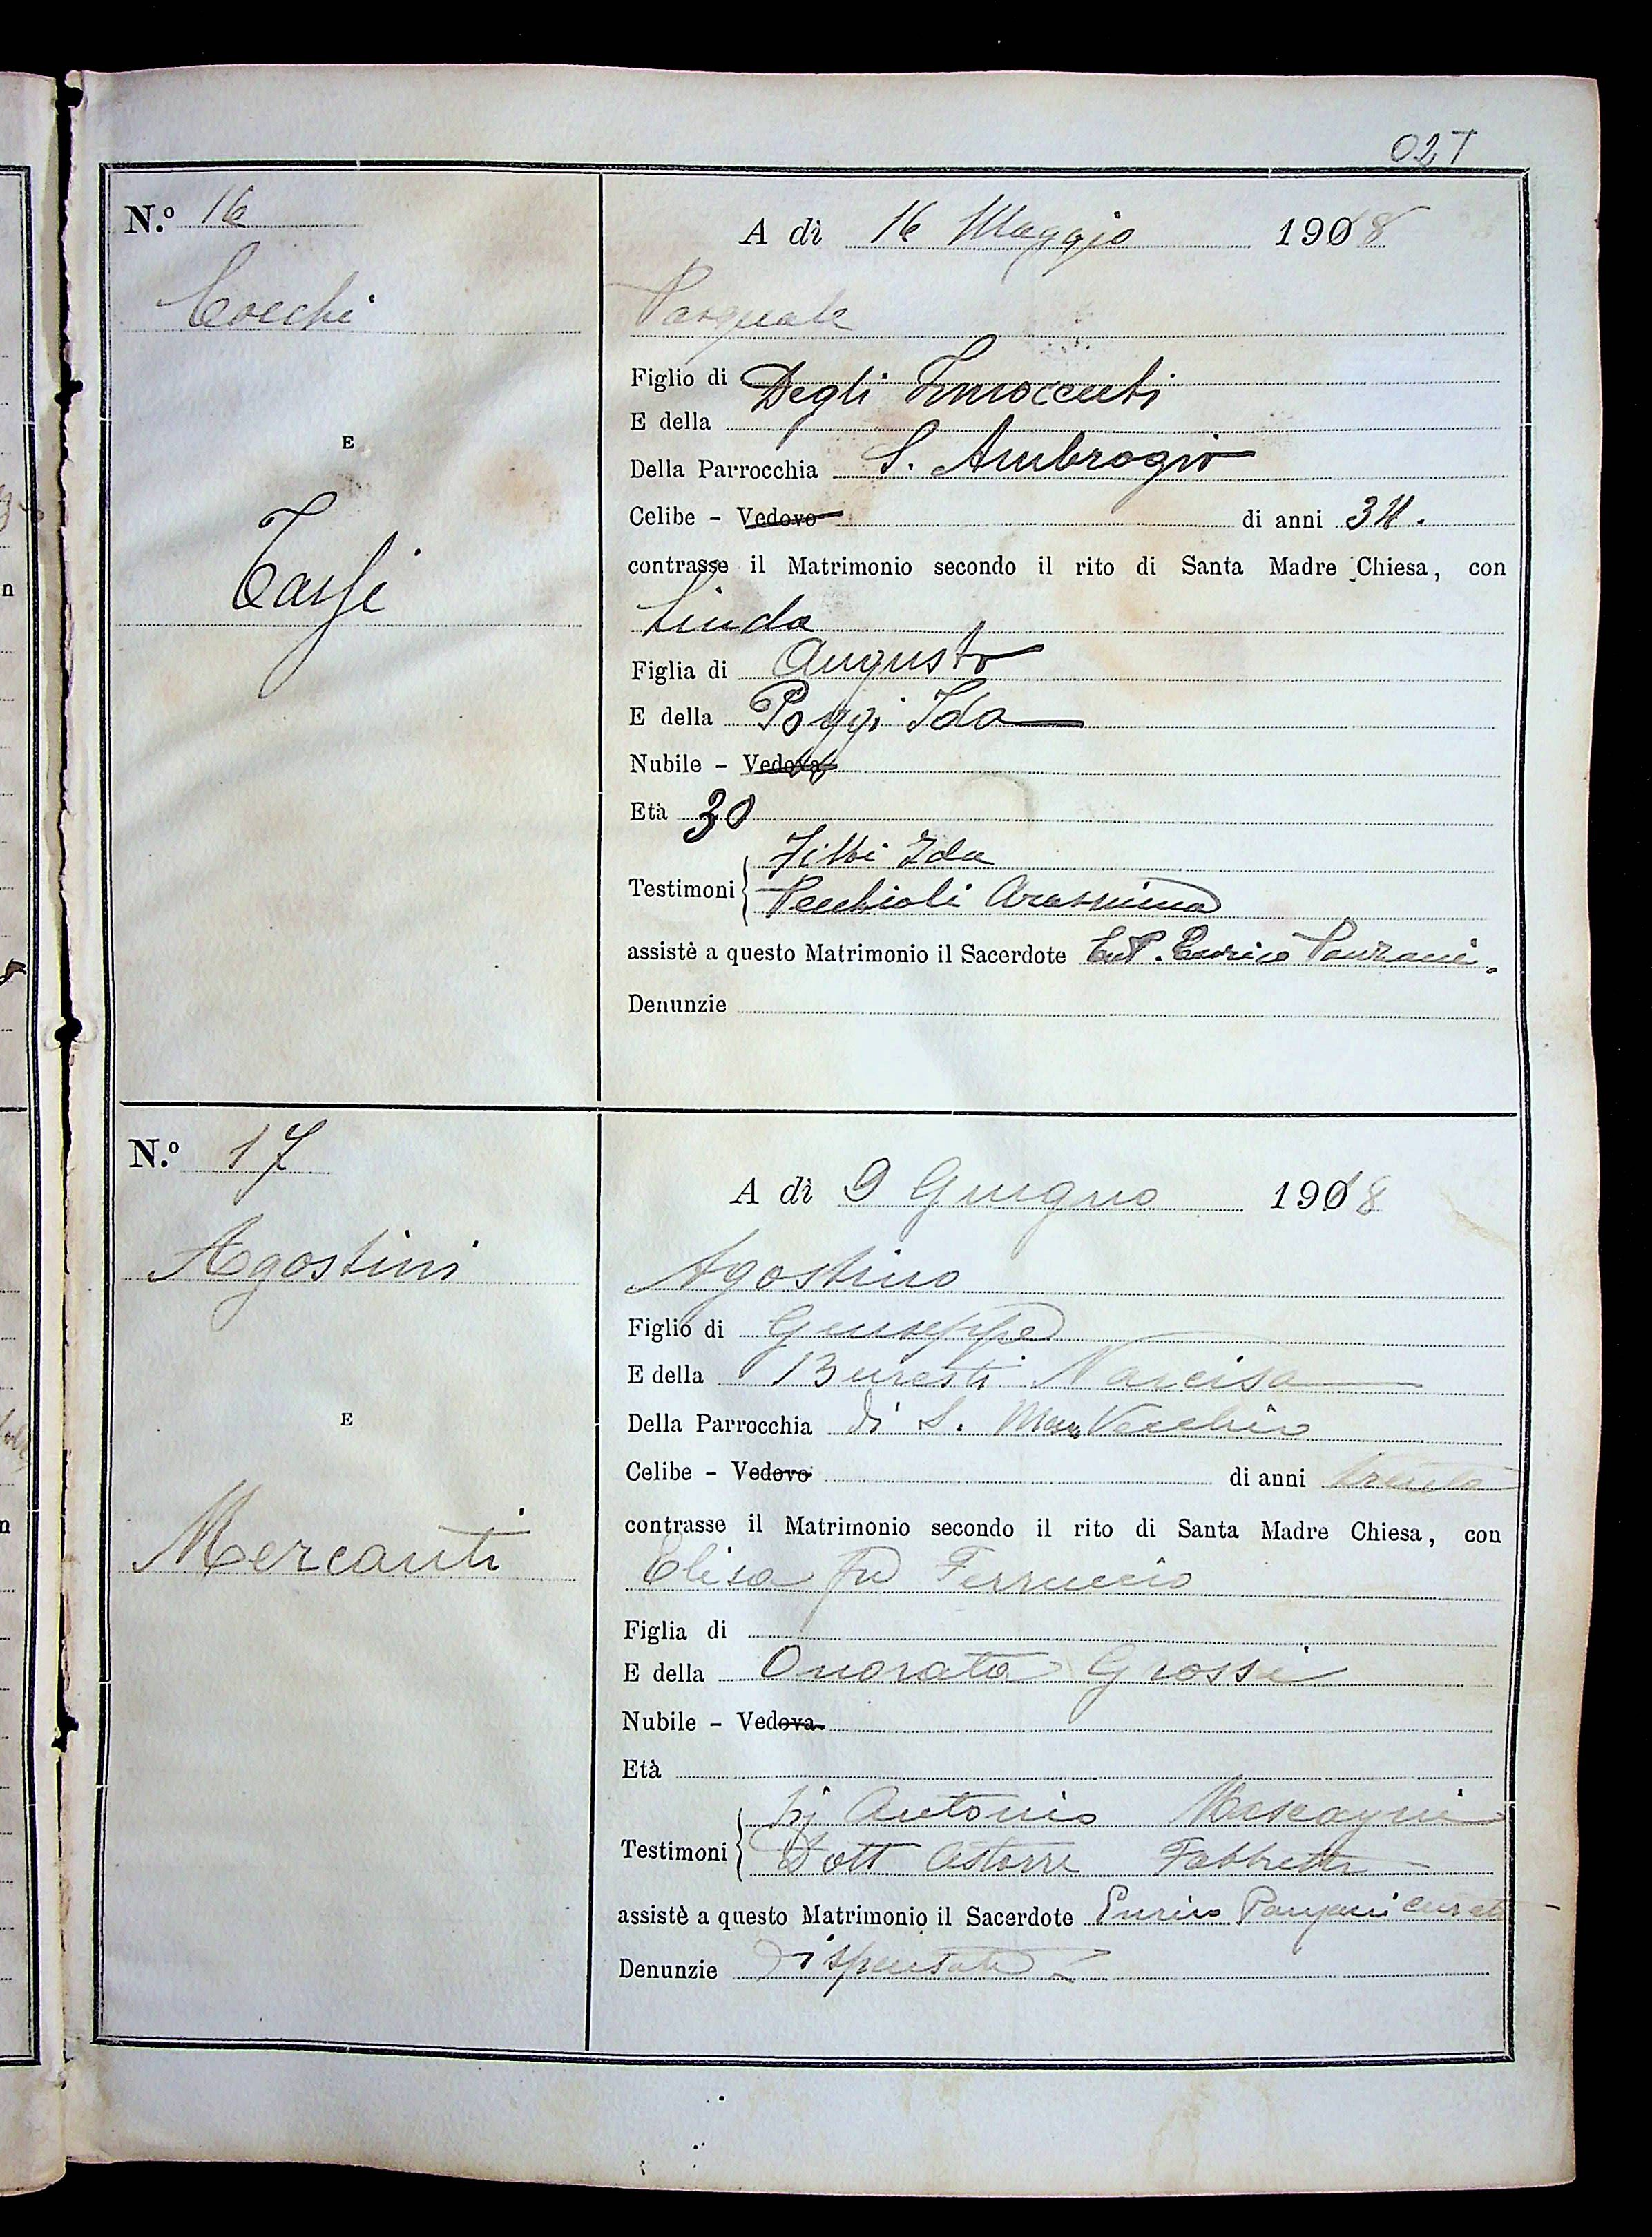 027
N.º 16
A dì 16 Maggio 1918
Cocchi
Pasquale
Figlio di Degli Innocenti
E della
E
Della Parrocchia S. Ambrogio
Celibe - Vedovo di anni 34.
contrasse il Matrimonio secondo il rito di Santa Madre Chiesa, con
Tarsi
Linda
Figlia di Augusto
E della Poggi Ida
Nubile - Vedova
Età 30
Ida
Testimoni Vecchioli
assistè a questo Matrimonio il Sacerdote Enrico Panzani.
Denunzie
N.º 17
A dì 9 Giugno 1918
Agostini
Agostino
Figlio di Giuseppe
E della Buresti Narcisa
E
Della Parrocchia di S. Vecchio
Celibe - Vedovo di anni trenta
contrasse il Matrimonio secondo il rito di Santa Madre Chiesa, con
Mercanti
Elisa fu Ferruccio
Figlia di
E della Onorata Grossi
Nubile - Vedova
Età
Antonio Mascagni
Testimoni Dott Astorre Fabbretti
assistè a questo Matrimonio il Sacerdote Enrico Panzani curato
Denunzie Dispensate